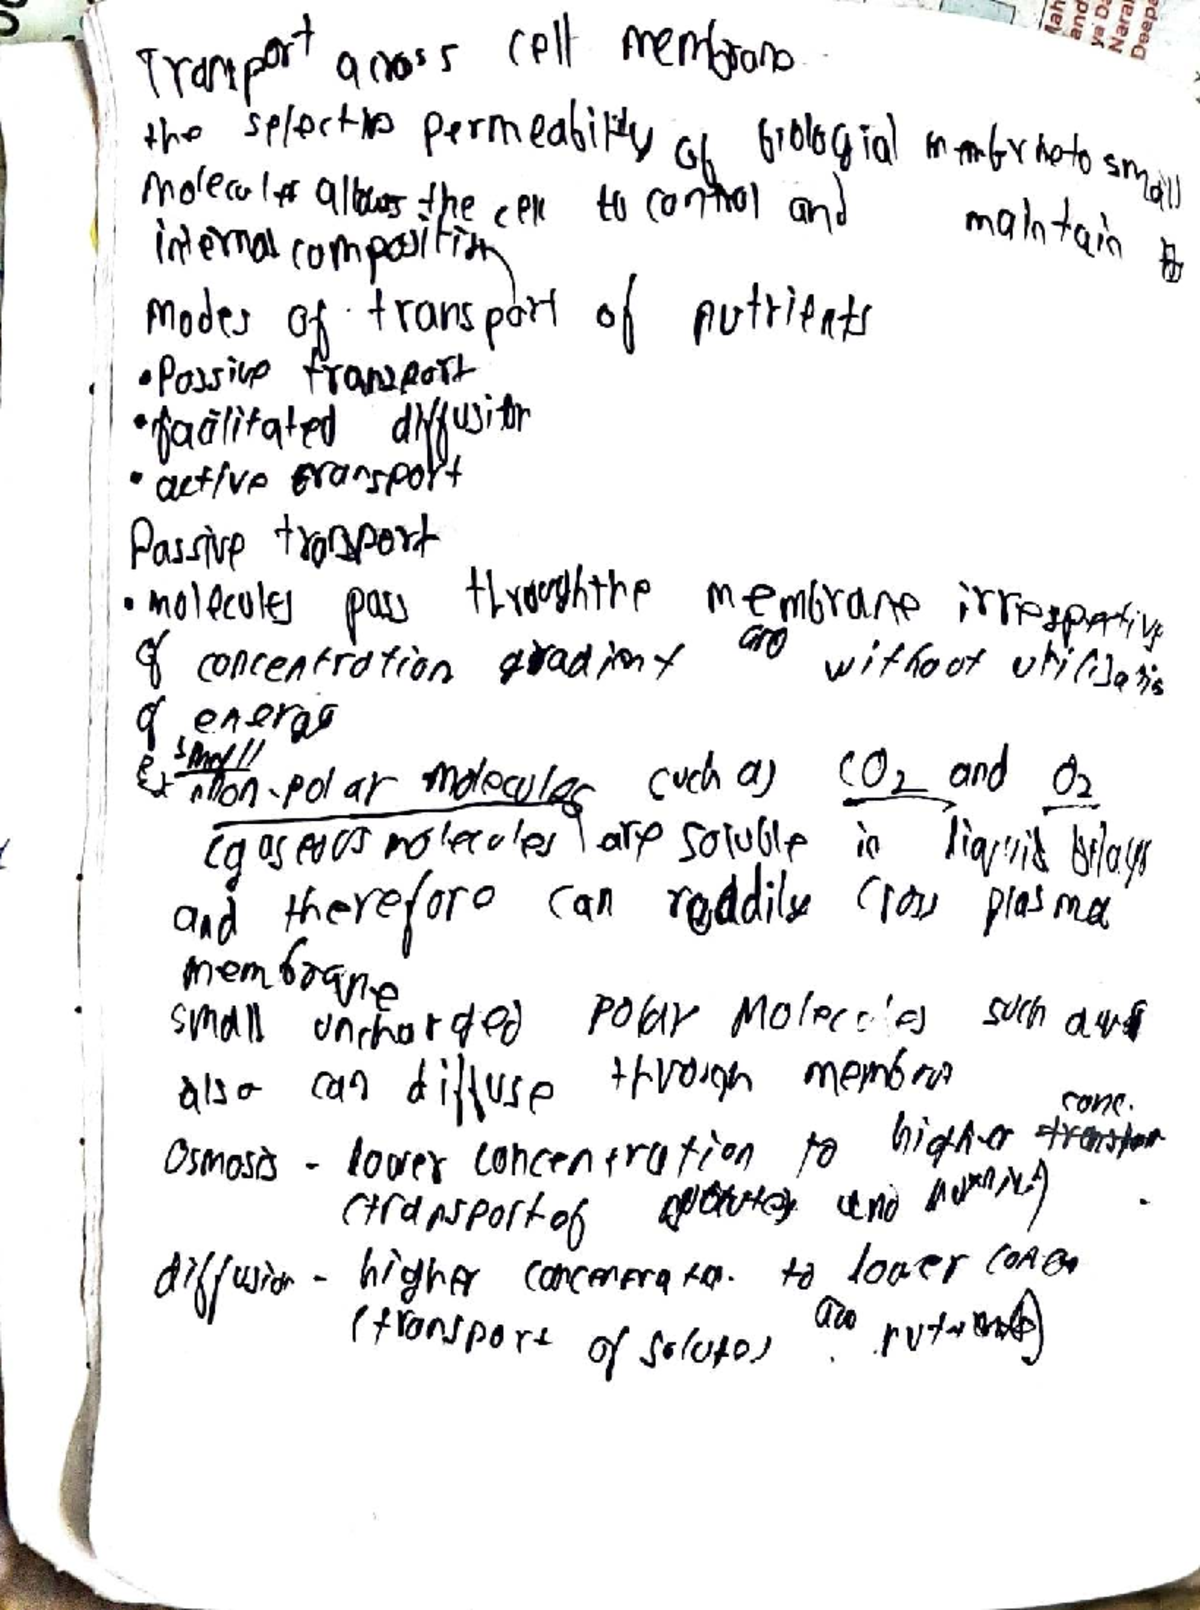 Transport across cell membrane
the selective permeability of biologial membrane to small
molecules allows the cell to control and maintain its
internal composition
Modes of transport of nutrients
• Passive transport
• facilitated diffusion
• active transport
Passive transport
• molecules pass through the membrane irrespective
of concentration gradient and without utilization
of energy
Ex small non-polar molecules such as CO2 and O2
(gaseous molecules) are soluble in liquid bilayer
and therefore can readily cross plasma
membrane
small uncharged polar molecules such as
also can diffuse through membrane
conc.
Osmosis - lower concentration to higher
(transport of and
diffusion - higher to lower conc
(transport of solutes and nutrients)
Mah
and
ya Da
Narai
Deepa